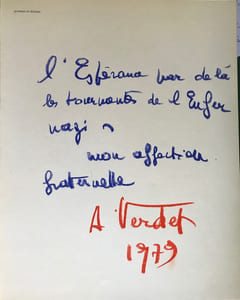 l'Espérance par delà
les tourmentes de l'Enfer
nazi
mon affection
fraternelle
A. Verdet
1979